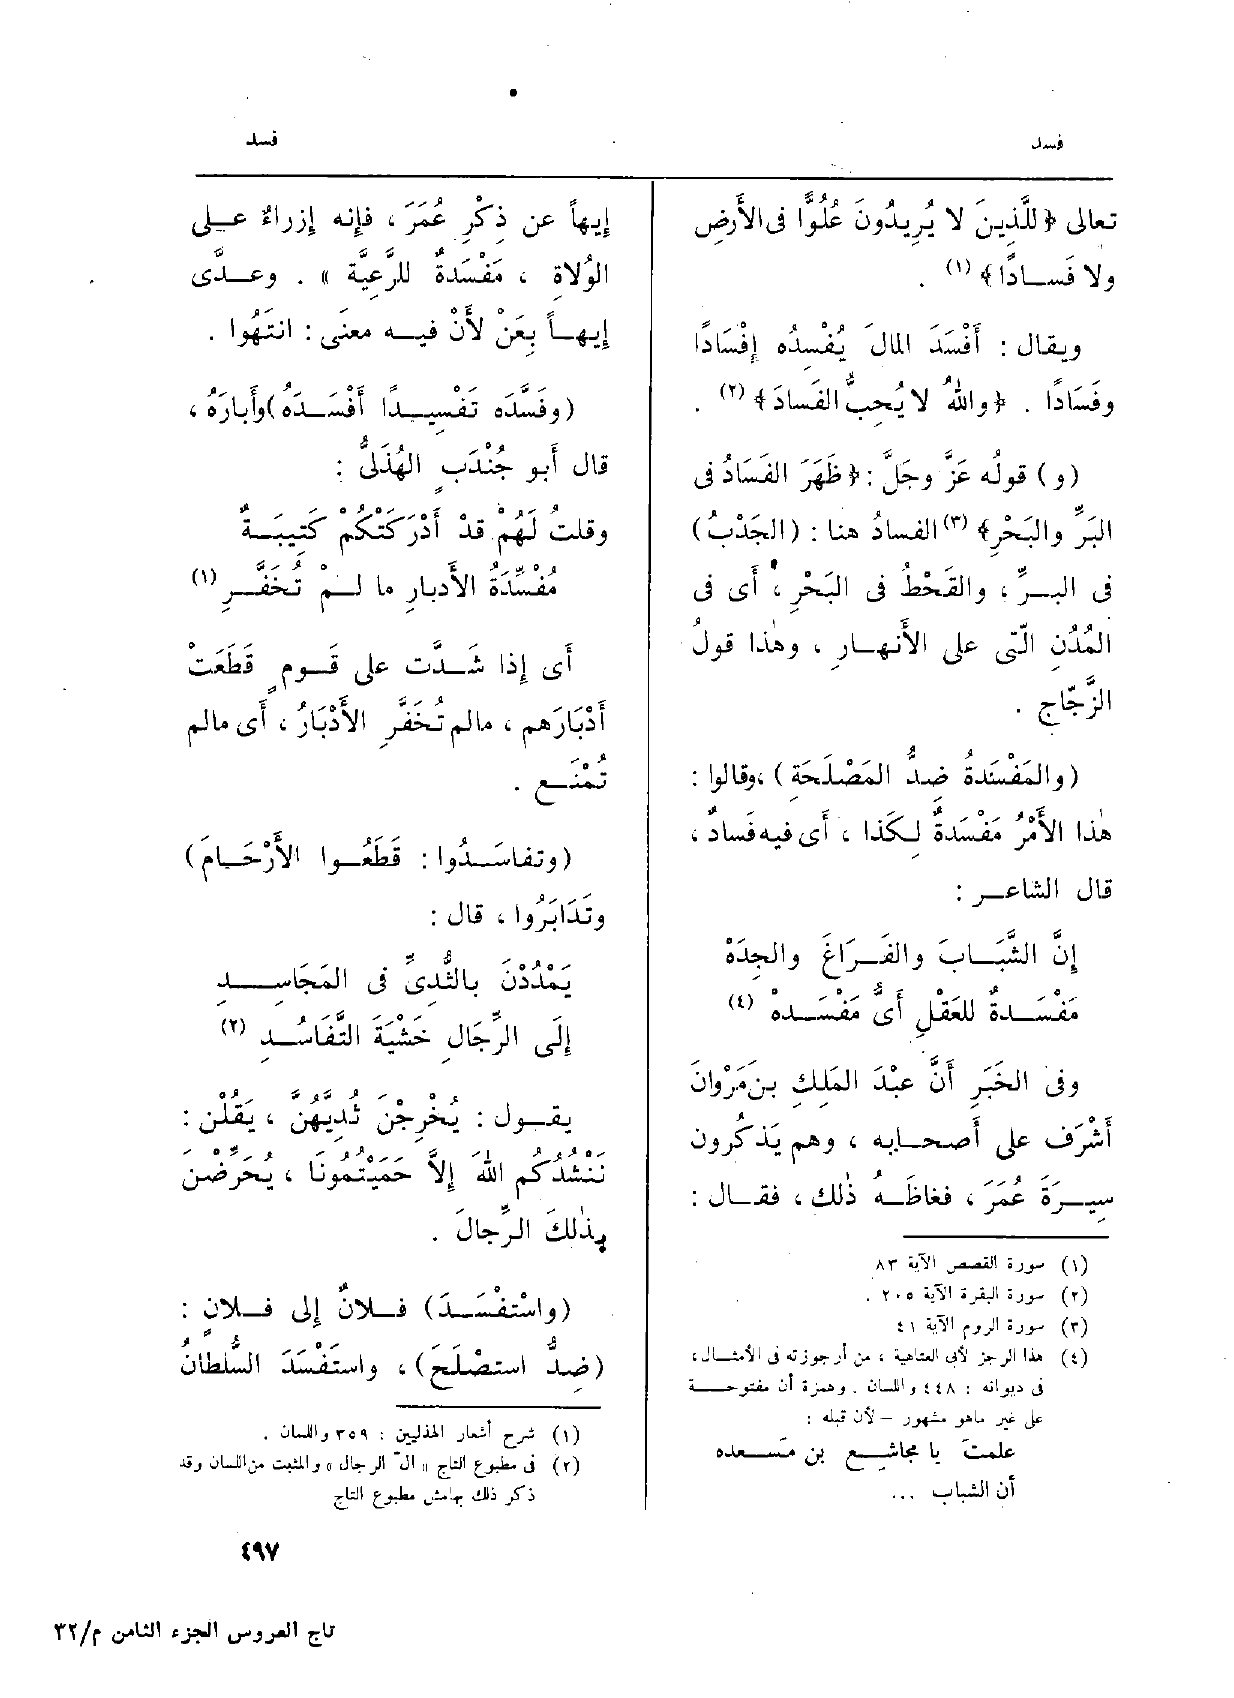 فسد
فسد
تعالى ﴿لِلَّذِينَ لا يُرِيدُونَ عُلُوًّا فى الأَرْضِ
ولا فَسَادًا﴾ (١) .
ويقال : أَفْسَدَ المالَ يُفْسِدُه إِفْسَادًا
وفَسَادًا . ﴿واللهُ لا يُحِبُّ الفَسادَ﴾ (٢) .
(و) قولُه عَزَّ وجَلَّ : ﴿ظَهَرَ الفَسَادُ فى
البَرِّ والبَحْرِ﴾ (٣) الفسادُ هنا : (الجَدْبُ)
فى البـرِّ ، والقَحْطُ فى البَحْرِ ، أَى فى
المُدُنِ الَّتى على الأَنهـارِ ، وهٰذا قولُ
الزَّجّاجِ .
(والمَفْسَدَةُ ضِدُّ المَصْلَحَةِ) ، وقالوا :
هٰذا الأَمْرُ مَفْسَدَةٌ لِـكَذا ، أَى فيه فَسادٌ ،
قال الشاعـر :
إِنَّ الشَّبَـابَ والفَـرَاغَ والجِدَهْ
مَفْسَـدَةٌ للعَقْلِ أَىُّ مَفْسَـدهْ (٤)
وفى الخَبَرِ أَنَّ عبْدَ المَلِكِ بن مَرْوانَ
أَشْرَفَ على أَصحـابِه ، وهم يَذكُرون
سِيـرَةَ عُمَرَ ، فغاظَـهُ ذٰلك ، فقـال :
(١) سورة القصص الآية ٨٣
(٢) سورة البقرة الآية ٢٠٥ .
(٣) سورة الروم الآية ٤١
(٤) هذا الرجز لأبى العتاهية ، من أرجوزته فى الأمثـال ،
فى ديوانه : ٤٤٨ واللسان . وهمزة أن مفتوحـــة
على غير ماهو مشهور – لأن قبله :
علمتَ يا مجاشـع بن مَسـعده
أن الشباب ...
إِيهاً عن ذِكْرِ عُمَرَ ، فإِنه إِزراءٌ عـلى
الوُلاةِ ، مَفْسَدةٌ للرَّعِيَّة » . وعـدَّى
إِيهـاً بِعَنْ لأَنْ فيـه معنَى : انتَهُوا .
(وفَسَّدَه تَفْسِيـدًا أَفْسَـدَهُ) وأَبارَهُ ،
قال أَبو جُنْدَبٍ الهُذَلىُّ :
وقلتُ لَهُمْ قدْ أَدْرَكَتْكُم كَتِيبَـةٌ
مُفَسِّدَةُ الأَدبارِ ما لـم تُخَفَّـرِ (١)
أَى إِذا شَـدَّت على قَـومٍ قَطَعَتْ
أَدْبَارَهم ، مالم تُخَفَّرِ الأَدْبَارُ ، أَى مالم
تُمْنَـع .
(وتفاسَـدُوا : قَطَعُـوا الأَرْحَـامَ)
وتَدَابَرُوا ، قال :
يَمْدُدْنَ بالثُّدِىِّ فى المَجَاسِـــدِ
إِلَى الرِّجَالِ خَشْيَةَ التَّفَاسُـدِ (٢)
يقـول : يُخْرِجْنَ ثُدِيهُنّ ، يَقُلْن :
نَنْشُدُكُم اللهَ إِلاَّ حَمَيْتُمونَا ، يُحَرِّضْنَ
بِذٰلكَ الرِّجالَ .
(واسْتفْسَـدَ) فـلانٌ إِلى فـلان :
(ضِدُّ استَصْلَحَ) ، واستَفْسَدَ السُّلطانُ
(١) شرح أشعار الهذليين : ٣٥٩ واللسان .
(٢) فى مطبوع التاج « ال الرجال » والمثبت من اللسان وقد
ذكر ذلك بهامش مطبوع التاج
٤٩٧
تاج العروس الجزء الثامن م/٣٢